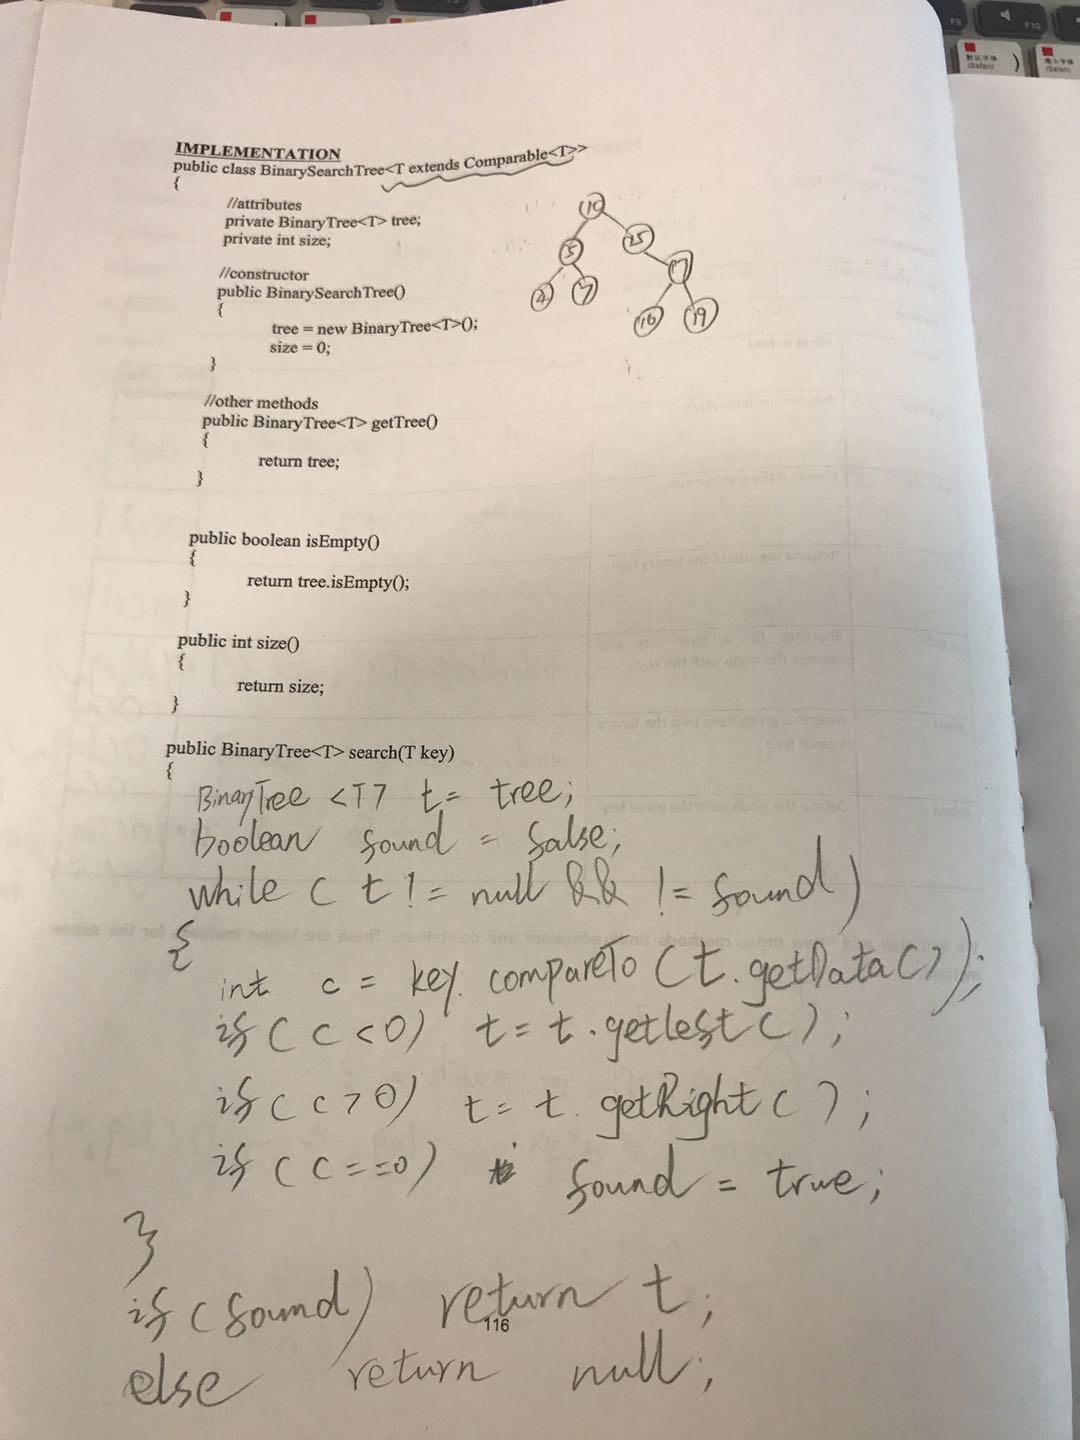 F9
F10
默认字体
(Safari)
)
缩小字体
(Safari)
IMPLEMENTATION
public class BinarySearchTree<T extends Comparable<T>>
{
//attributes
private BinaryTree<T> tree;
private int size;
//constructor
public BinarySearchTree()
{
tree = new BinaryTree<T>();
size = 0;
}
10
5
4
7
17
16
19
//other methods
public BinaryTree<T> getTree()
{
return tree;
}
public boolean isEmpty()
{
return tree.isEmpty();
}
public int size()
{
return size;
}
public BinaryTree<T> search(T key)
{
BinaryTree <T> t = tree;
boolean found = false;
while ( t != null && != found)
{
int c = key.compareTo (t.getData());
if ( c < 0) t = t.getleft( );
if ( c > 0) t = t.getRight( );
if ( c == 0) found = true;
}
if (found) return t;
116
else return null;